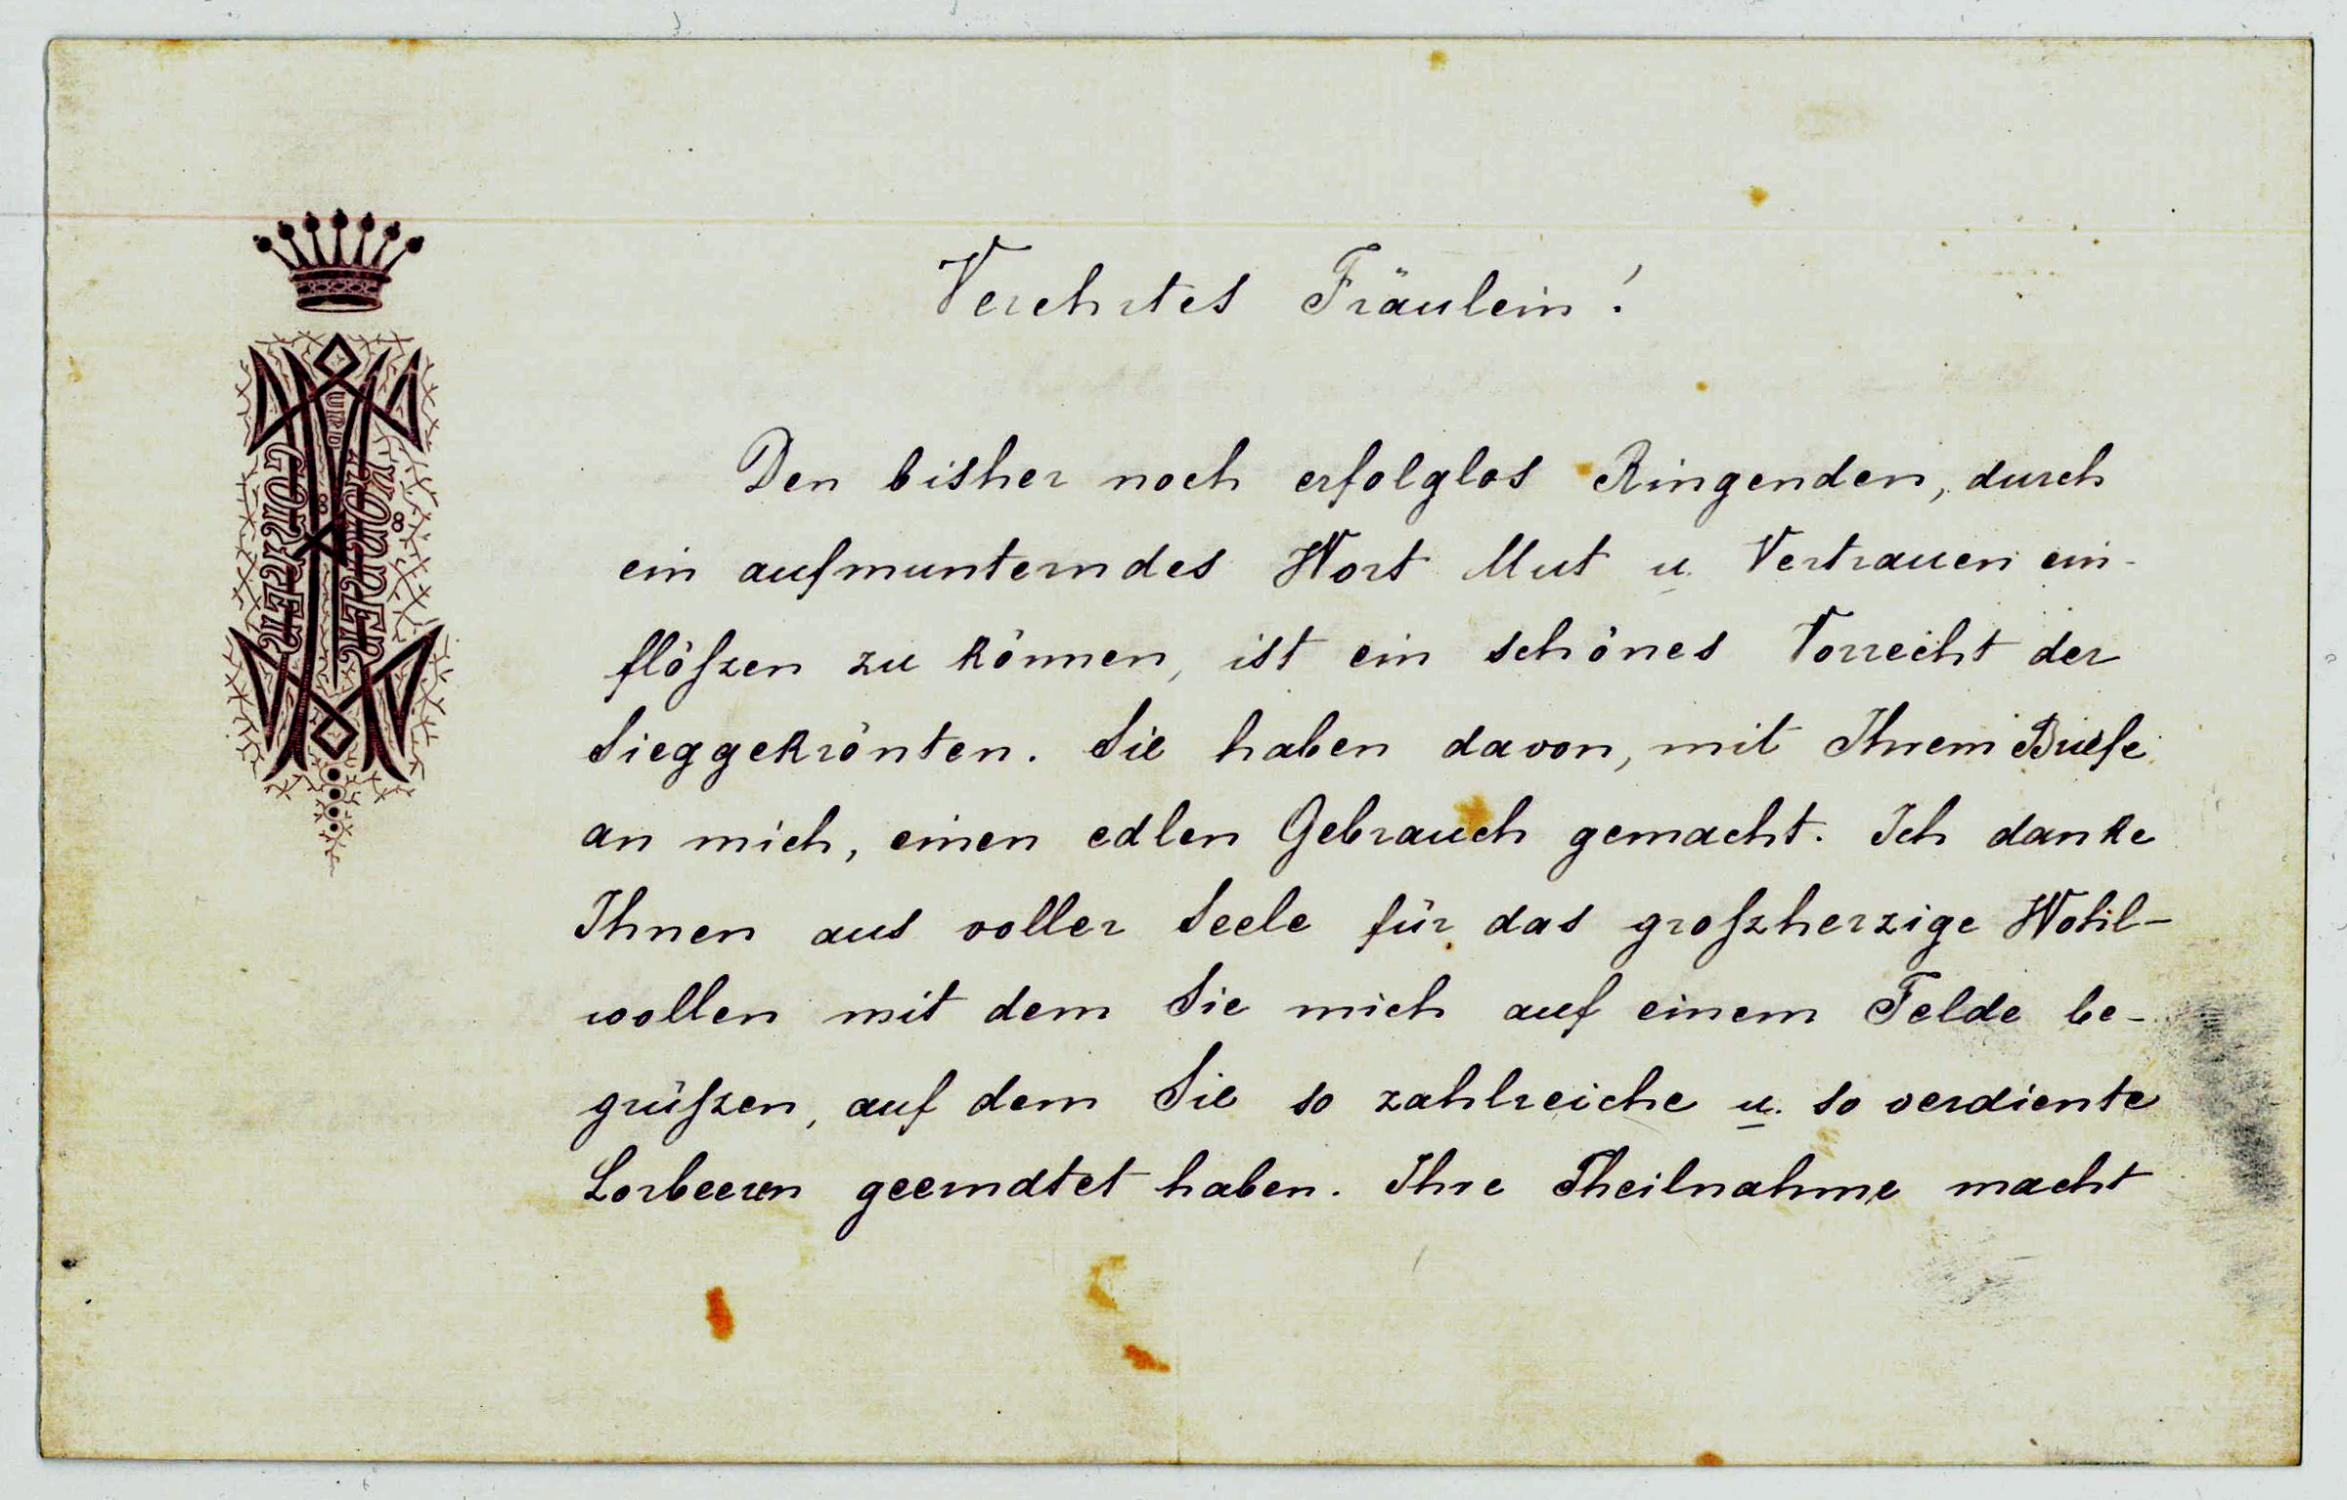 UND
GUNDAKER
WURMBRAND
Verehrtes Fräulein!
Den bisher noch erfolglos Ringenden, durch
ein aufmunterndes Wort Mut u. Vertrauen ein-
flößen zu können, ist ein schönes Vorrecht der
Sieggekrönten. Sie haben davon, mit Ihrem Briefe
an mich, einen edlen Gebrauch gemacht. Ich danke
Ihnen aus voller Seele für das großherzige Wohl-
wollen mit dem Sie mich auf einem Felde be-
grüßen, auf dem Sie so zahlreiche u. so verdiente
Lorbeeren geerndtet haben. Ihre Theilnahme macht